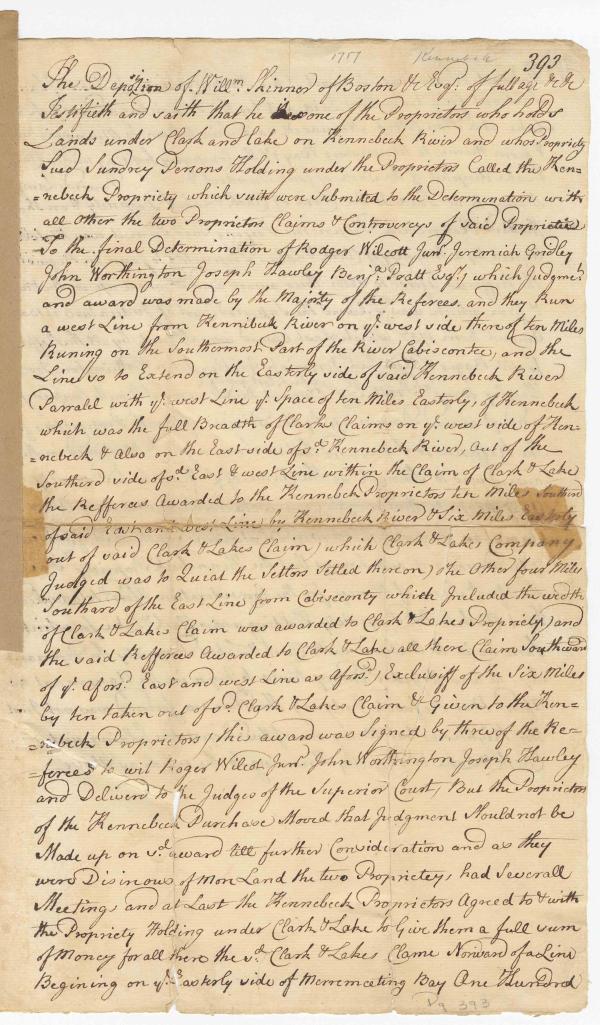 1757 Kennebeck 393
The Deposition of Willm Skinner of Boston &c Esqr of full age &c &c
Testifieth and saith that he is one of the Proprietors who holds
Lands under Clark and Lake on Kennebeck River and whos Propriety
Sued Sundrey Persons Holding under the Proprietors Called the Ken=
=nebeck Propriety which suits were Submited to the Determination with
all other the two Proprietors Claims & Controverseys of said Proprieties
To the final Determination of Rodger Wilcott Junr. Jeremiah Gridley
John Worthington Joseph Hawley Benja. Pratt Esqrs, which Judgmet.
and award was made by the Majority of the Referees. and they Run
a west Line from Kennibeck River on ye. west side there of ten Miles
Runing on the Southermost Part of the River Cabiscontee, and the
Line so to Extend on the Easterly side of said Kennebeck River
Parralel with ye. west Line ye. Space of ten Miles Easterly, of Kennebeck
which was the full Breadth of Clarks Claims on ye. west side of Ken=
=nebeck & Also on the East side of sd. Kennebeck River, Out of the
Southerd side of sd. East & west Line within the Claim of Clark & Lake
the Refferees Awarded to the Kennebeck Proprietors ten Miles Southerd
of said East and West Line by Kennebeck River & Six Miles Easterly
out of said Clark & Lakes Claim, which Clark & Lakes Company
Judged was to Quiat the Settors Settled thereon, The Other four Miles
Southard of the East Line from Cabisconty which Included the wedth
of Clark & Lakes Claim was awarded to Clark & Lakes Propriety, and
the said Refferees Awarded to Clark & Lake all there Claim Southward
of ye. Aforsd. East and west Line as Aforsd., Exclusiff of the Six Miles
by ten taken out of sd. Clark & Lakes Claim & Given to the Ken=
=nebeck Proprietors, this award was Signed by three of the Re=
=ferees to wit Roger Wilcot Junr. John Worthington Joseph Hawley
and Deliverd to the Judges of the Superior Court, But the Proprietors
of the Kennebeck Purchase Moved that Judgment Should not be
Made up on sd. award till further Consideration and as they
were Disirious of Mor Land the two Proprieteys had Severall
Meetings and at Last the Kennebeck Proprietors Agreed to & with
the Propriety Holding under Clark & Lake to Give them a full sum
of Money for all there the sd. Clark & Lakes Clame Norward of a Line
Begining on ye. Easterly side of Merremeeting Bay One Hundred
Pg 393